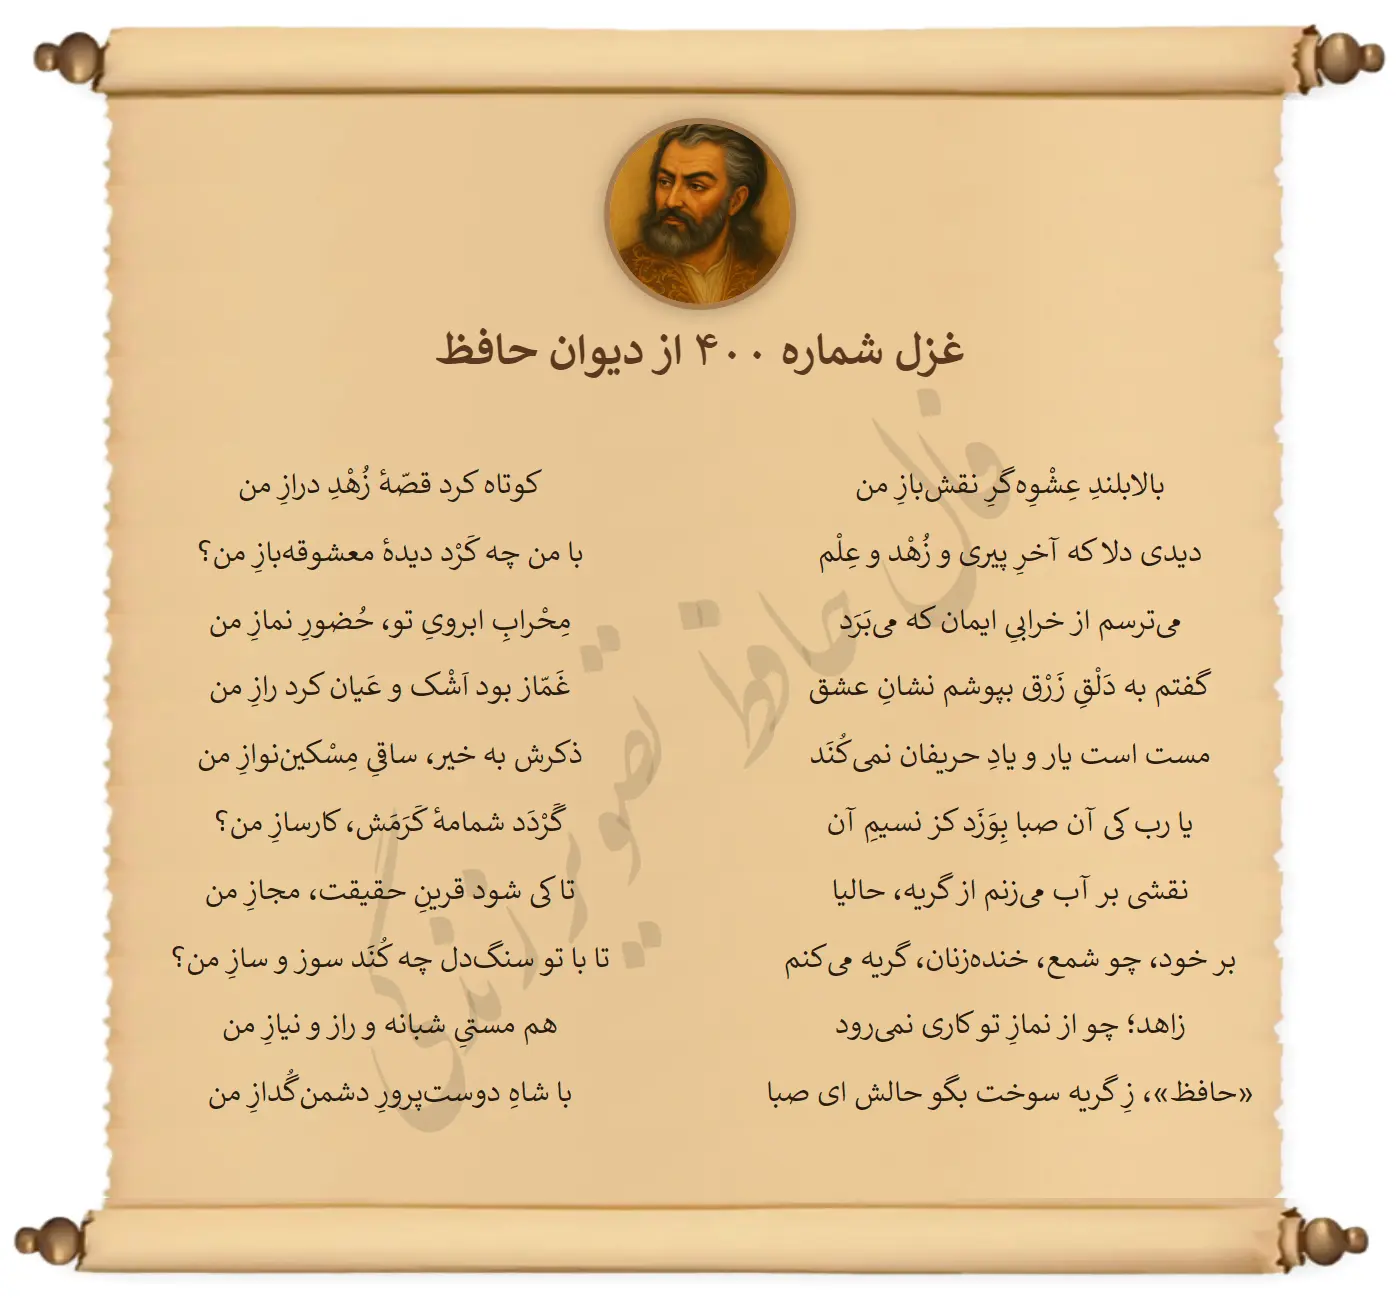 غزل شماره ۴۰۰ از دیوان حافظ
بالابلندِ عِشْوِه‌گَرِ نقش‌بازِ من
کوتاه کرد قصّهٔ زُهْدِ درازِ من
دیدی دلا که آخرِ پیری و زُهْد و عِلْم
با من چه کَرْد دیدهٔ معشوقه‌بازِ من؟
می‌ترسم از خرابیِ ایمان که می‌بَرَد
مِحْرابِ ابرویِ تو، حُضورِ نمازِ من
گفتم به دَلْقِ زَرْق بپوشم نشانِ عشق
غَمّاز بود اَشْک و عَیان کرد رازِ من
مست است یار و یادِ حریفان نمی‌کُنَد
ذکرش به خیر، ساقیِ مِسْکین‌نوازِ من
یا رب کی آن صبا بِوَزَد کز نسیمِ آن
گَرْدَد شمامهٔ کَرَمَش، کارسازِ من؟
نقشی بر آب می‌زنم از گریه، حالیا
تا کی شود قرینِ حقیقت، مجازِ من
بر خود، چو شمع، خنده‌زنان، گریه می‌کنم
تا با تو سنگ‌دل چه کُنَد سوز و سازِ من؟
زاهد؛ چو از نمازِ تو کاری نمی‌رود
هم مستیِ شبانه و راز و نیازِ من
«حافظ»، زِ گریه سوخت بگو حالش ای صبا
با شاهِ دوست‌پرورِ دشمن‌گُدازِ من
فال حافظ تصویر زندگی